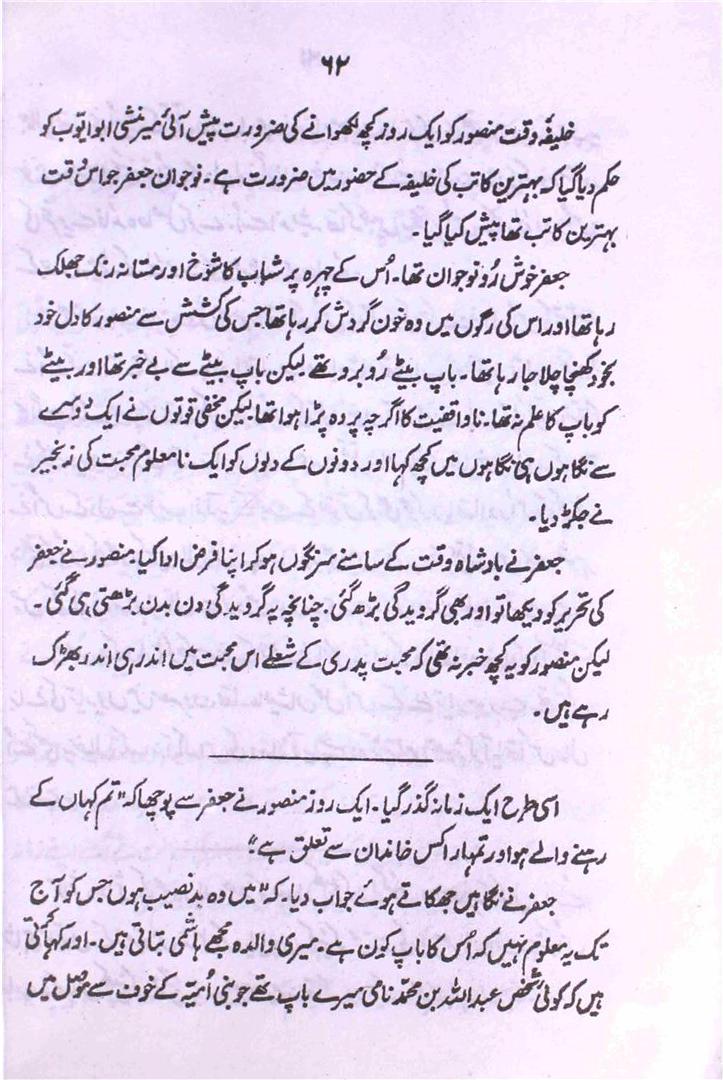 ۶۲
خلیفۂ وقت منصور کو ایک روز کچھ لکھوانے کی ضرورت پیش آئی میر منشی ابو ایوب کو
حکم دیا گیا کہ بہترین کاتب کی خلیفہ کے حضور میں ضرورت ہے۔ نوجوان جعفر جو اس وقت
بہترین کاتب تھا پیش کیا گیا۔
جعفر خوش رُو نوجوان تھا۔ اُس کے چہرہ پر شباب کا شوخ اور مستانہ رنگ جھلک
رہا تھا اور اس کی رگوں میں وہ خون گردش کر رہا تھا جس کی کشش سے منصور کا دل خود
بخود کھنچا چلا جا رہا تھا۔ باپ بیٹے رُو برو تھے لیکن باپ بیٹے سے بے خبر تھا اور بیٹے
کو باپ کا علم نہ تھا۔ ناواقفیت کا اگرچہ پردہ پڑا ہوا تھا لیکن مخفی قوتوں نے ایک دُوسرے
سے نگاہوں ہی نگاہوں میں کچھ کہا اور دونوں کے دلوں کو ایک نامعلوم محبت کی زنجیر
نے جکڑ دیا۔
جعفر نے بادشاہ وقت کے سامنے سرنگوں ہو کر اپنا فرض ادا کیا۔ منصور نے جعفر
کی تحریر کو دیکھا تو اور بھی گرویدگی بڑھ گئی۔ چنانچہ یہ گرویدگی دن بدن بڑھتی ہی گئی۔
لیکن منصور کو یہ کچھ خبر نہ تھی کہ محبت پدری کے شعلے اس محبت میں اندر ہی اندر بھڑک
رہے ہیں۔
اسی طرح ایک زمانہ گذر گیا۔ ایک روز منصور نے جعفر سے پوچھا کہ "تم کہاں کے
رہنے والے ہو اور تمہارا کس خاندان سے تعلق ہے؟"
جعفر نے نگاہیں جھکاتے ہوئے جواب دیا۔ کہ "میں وہ بدنصیب ہوں جس کو آج
تک یہ معلوم نہیں کہ اُس کا باپ کون ہے۔ میری والدہ مجھے ہاشمی بتاتی ہیں۔ اور کہا کرتی
ہیں کہ کوئی شخص عبداللہ بن محمد نامی میرے باپ تھے جو بنی اُمیّہ کے خوف سے موصل میں